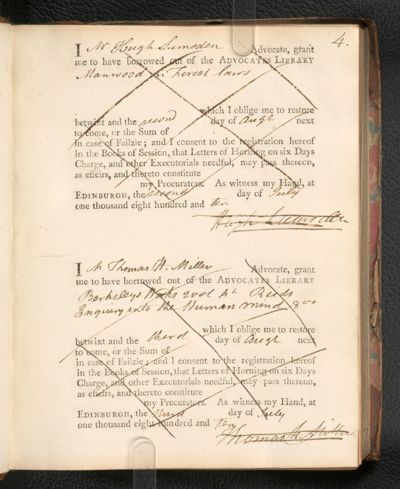 4.
I Mr Hugh Lumsden Advocate, grant
me to have borrowed out of the ADVOCATES LIBRARY
Manwood forest laws
which I oblige me to restore
betwixt and the second day of Augt next
to come, or the Sum of
in case of Failzie; and I consent to the registration hereof
in the Books of Session, that Letters of Horning on six Days
Charge, and other Executorials needful, may pass thereon,
as effeirs, and thereto constitute
my Procurators. As witness my Hand, at
EDINBURGH, the second day of July
one thousand eight hundred and ten
Hugh Lumsden
I Mr Thomas H. Miller Advocate, grant
me to have borrowed out of the ADVOCATES LIBRARY
Berkeleys Works 2 vol 4t Reids
Enquiry into the Human mind
which I oblige me to restore
betwixt and the third day of Augt next
to come, or the Sum of
in case of Failzie; and I consent to the registration hereof
in the Books of Session, that Letters of Horning on six Days
Charge, and other Executorials needful, may pass thereon,
as effeirs, and thereto constitute
my Procurators. As witness my Hand, at
EDINBURGH, the third day of July
one thousand eight hundred and ten
Thomas H. Miller